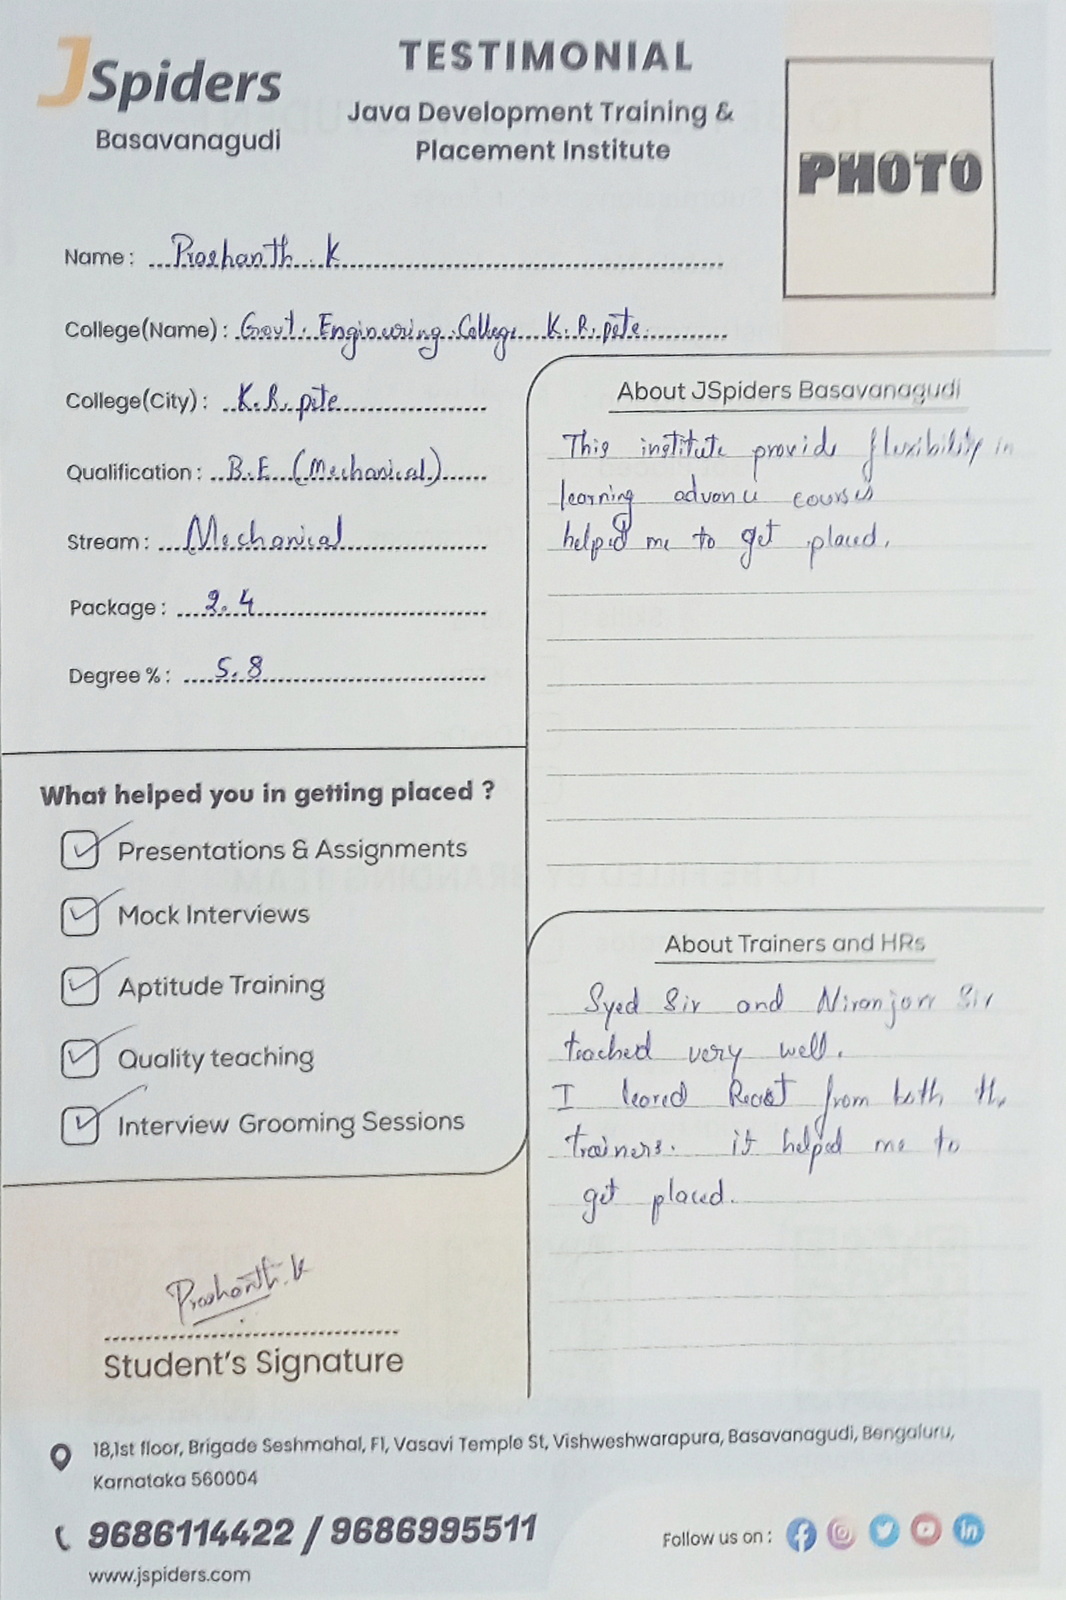 JSpiders
Basavanagudi
TESTIMONIAL
Java Development Training &
Placement Institute
PHOTO
Name : Prashanth . K
College(Name) : Govt. Engineering College K.R.pete.
College(City) : K.R. pete
Qualification : B.E (Mechanical)
Stream : Mechanical
Package : 2.4
Degree % : 5.8
About JSpiders Basavanagudi
This institute provide flexibility in
learning advance courses
helped me to get placed.
What helped you in getting placed ?
Presentations & Assignments
Mock Interviews
Aptitude Training
Quality teaching
Interview Grooming Sessions
About Trainers and HRs
Syed Sir and Niranjan Sir
teached very well.
I leared React from both the
trainers. it helped me to
get placed.
Prashanth.K
Student's Signature
18,1st floor, Brigade Seshmahal, F1, Vasavi Temple St, Vishweshwarapura, Basavanagudi, Bengaluru,
Karnataka 560004
9686114422 / 9686995511
www.jspiders.com
Follow us on :